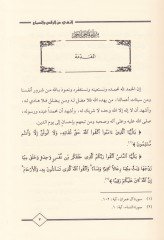 المقدمة
إن الحمد لله نحمده ونستعينه ونستغفره ونعوذ بالله من شرور أنفسنا
ومن سيئات أعمالنا، من يهده الله فلا مضل له ومن يضلل فلا هادي له،
وأشهد أن لا إله إلا الله وحده لا شريك له وأشهد أن محمداً عبده ورسوله
صلى الله عليه وعلى آله وصحبه ومن تبعهم بإحسان إلى يوم الدين.
﴿ يَا أَيُّهَا الَّذِينَ آمَنُوا اتَّقُوا اللَّهَ حَقَّ تُقَاتِهِ وَلَا تَمُوتُنَّ إِلَّا وَأَنْتُمْ
مُسْلِمُونَ ﴾
﴿ يَا أَيُّهَا النَّاسُ اتَّقُوا رَبَّكُمُ الَّذِي خَلَقَكُمْ مِنْ نَفْسٍ وَاحِدَةٍ وَخَلَقَ مِنْهَا
زَوْجَهَا وَبَثَّ مِنْهُمَا رِجَالًا كَثِيرًا وَنِسَاءً وَاتَّقُوا اللَّهَ الَّذِي تَسَاءَلُونَ بِهِ وَالْأَرْحَامَ
إِنَّ اللَّهَ كَانَ عَلَيْكُمْ رَقِيبًا ﴾